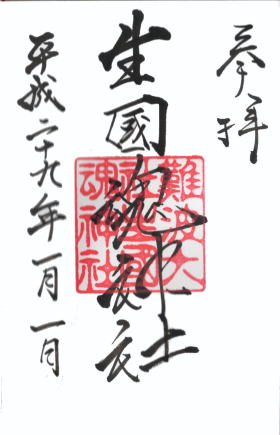 奉拝
生國魂神社
難波大
社生國
魂神社
平成二十九年一月一日